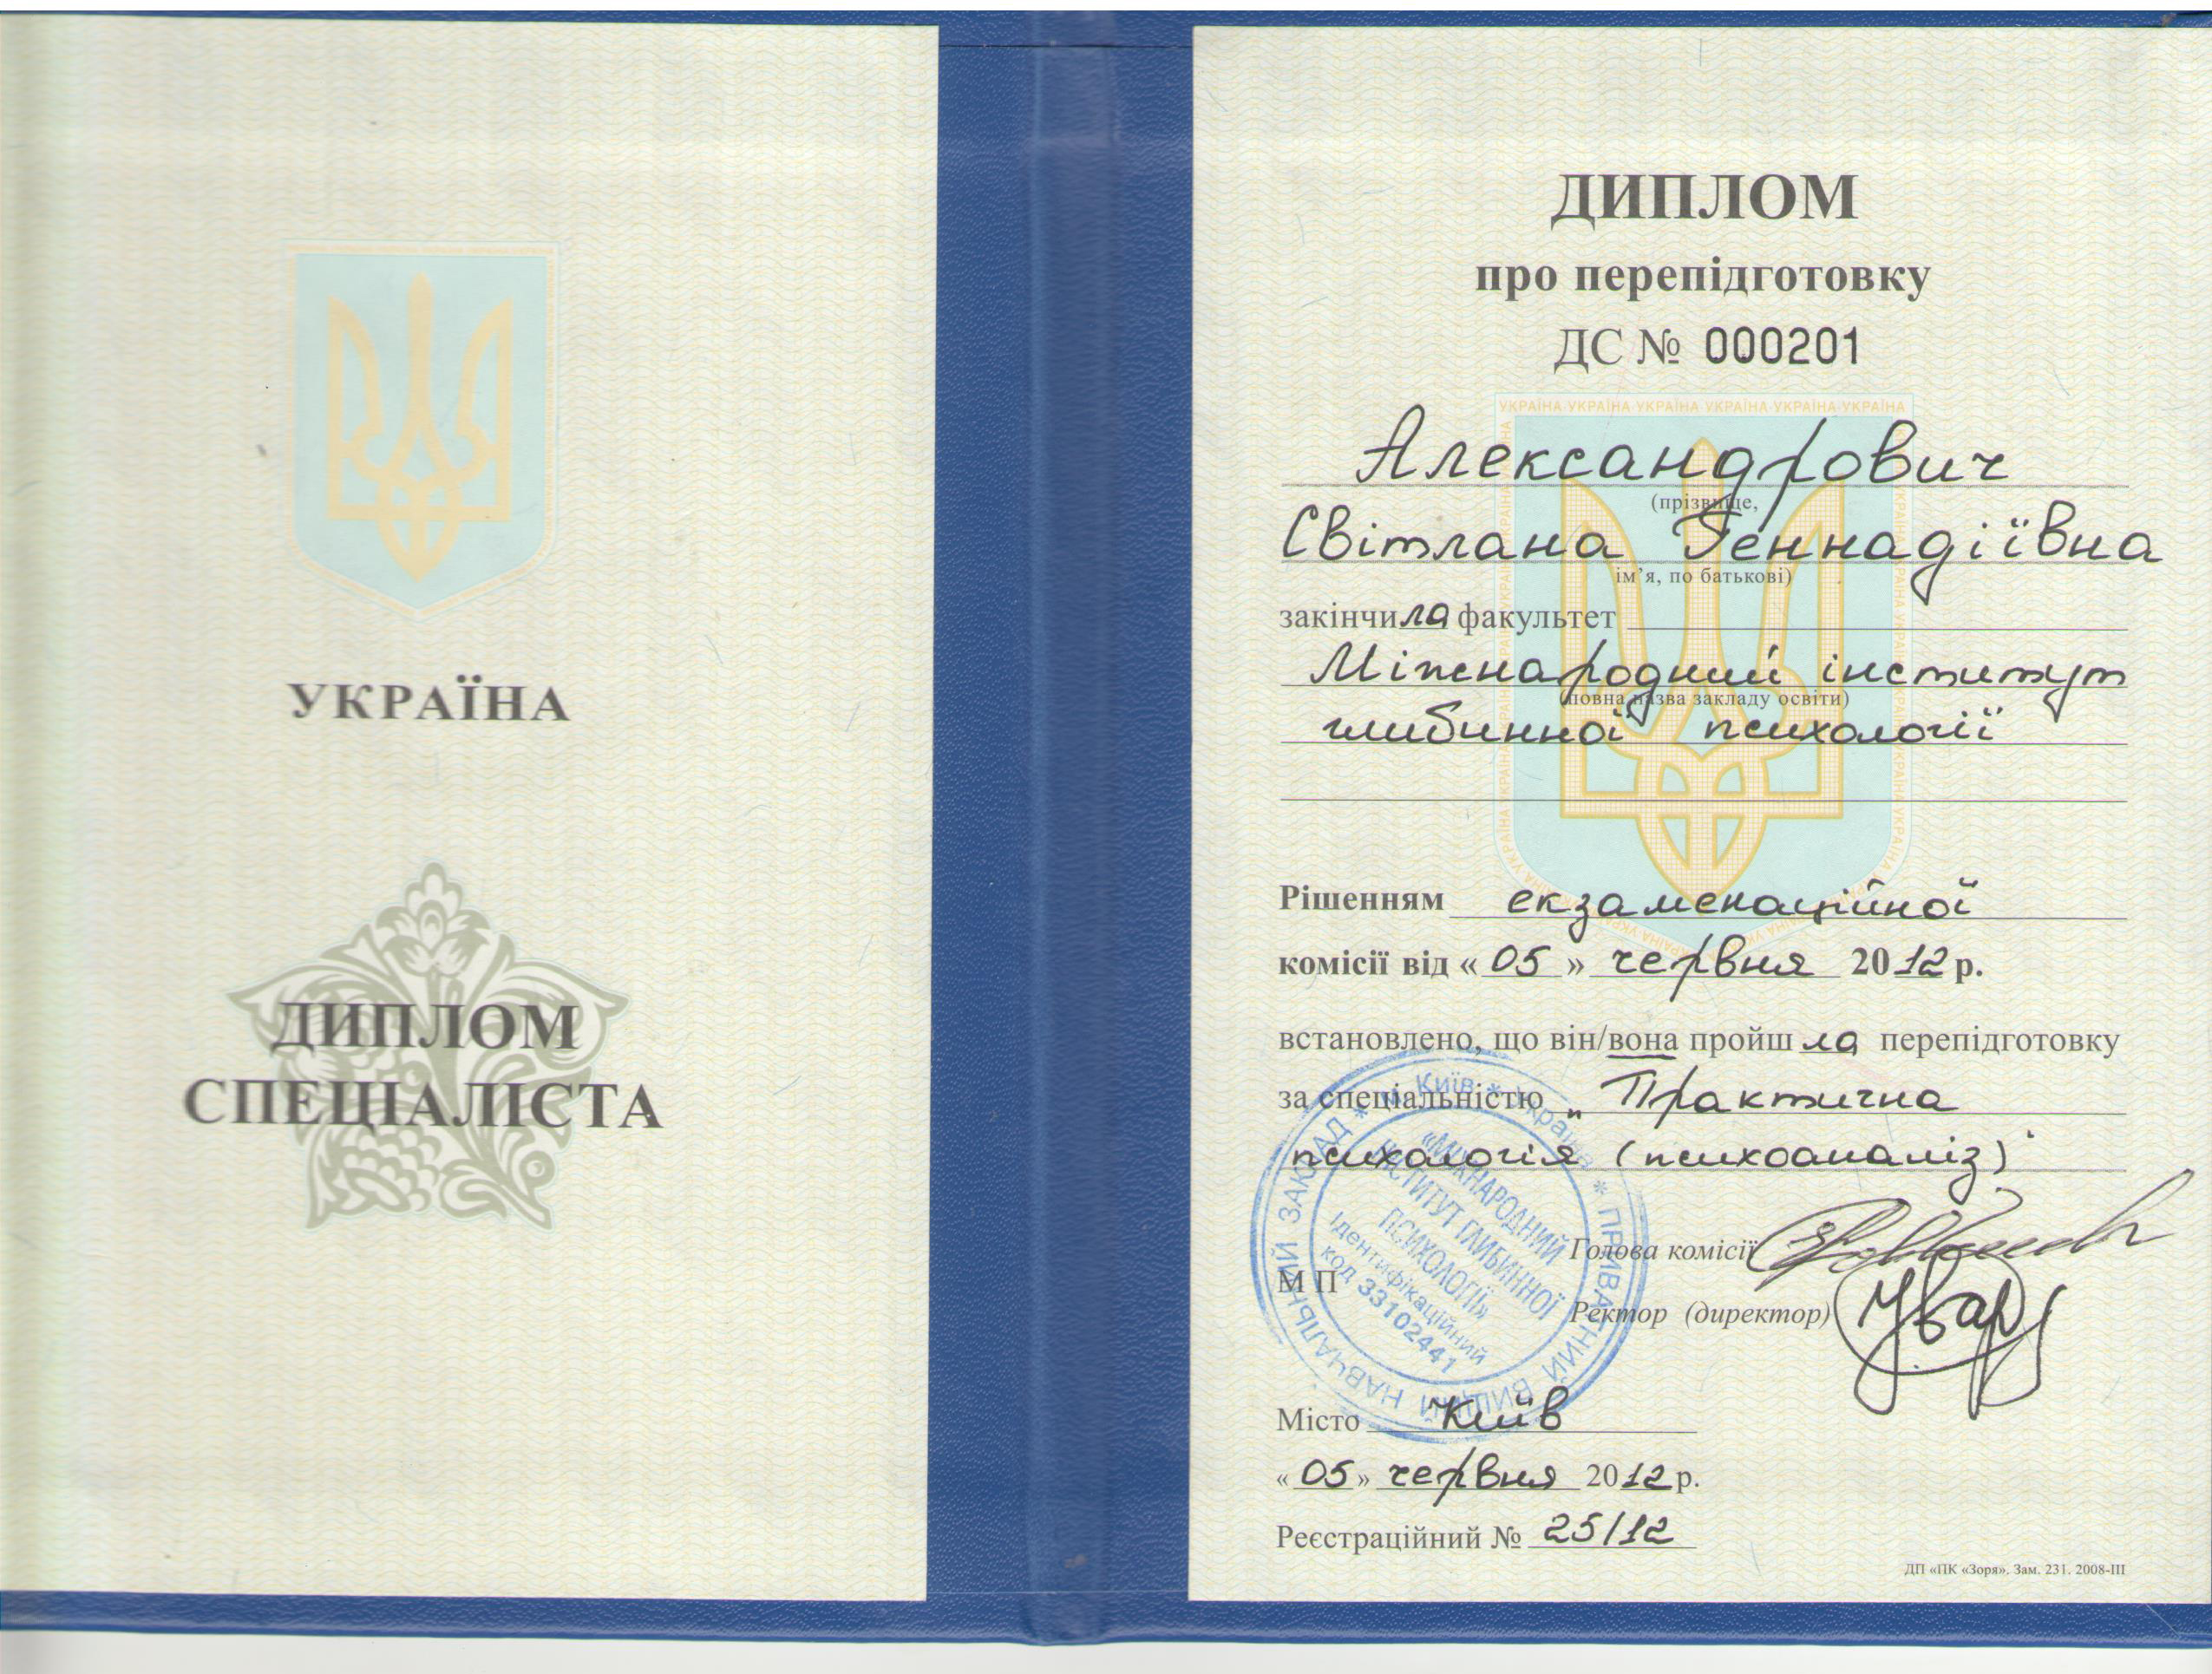 УКРАЇНА
ДИПЛОМ
СПЕЦІАЛІСТА
ДИПЛОМ
про перепідготовку
ДС № 000201
УКРАЇНА УКРАЇНА УКРАЇНА УКРАЇНА УКРАЇНА УКРАЇНА
Александрович
(прізвище,
Світлана Геннадіївна
ім’я, по батькові)
закінчила факультет
Міжнародний інститут
(повна назва закладу освіти)
глибинної психології
Рішенням екзаменаційної
комісії від «05» червня 2012 р.
встановлено, що він/вона пройшла перепідготовку
за спеціальністю „Практична
психологія (психоаналіз)“
Голова комісії
М П
Ректор (директор)
* м. Київ * Україна * ПРИВАТНИЙ ВИЩИЙ НАВЧАЛЬНИЙ ЗАКЛАД
«МІЖНАРОДНИЙ
ІНСТИТУТ ГЛИБИННОЇ
ПСИХОЛОГІЇ»
Ідентифікаційний
код 33102441
Місто Київ
«05» червня 2012 р.
Реєстраційний № 25/12
ДП «ПК «Зоря». Зам. 231. 2008-III